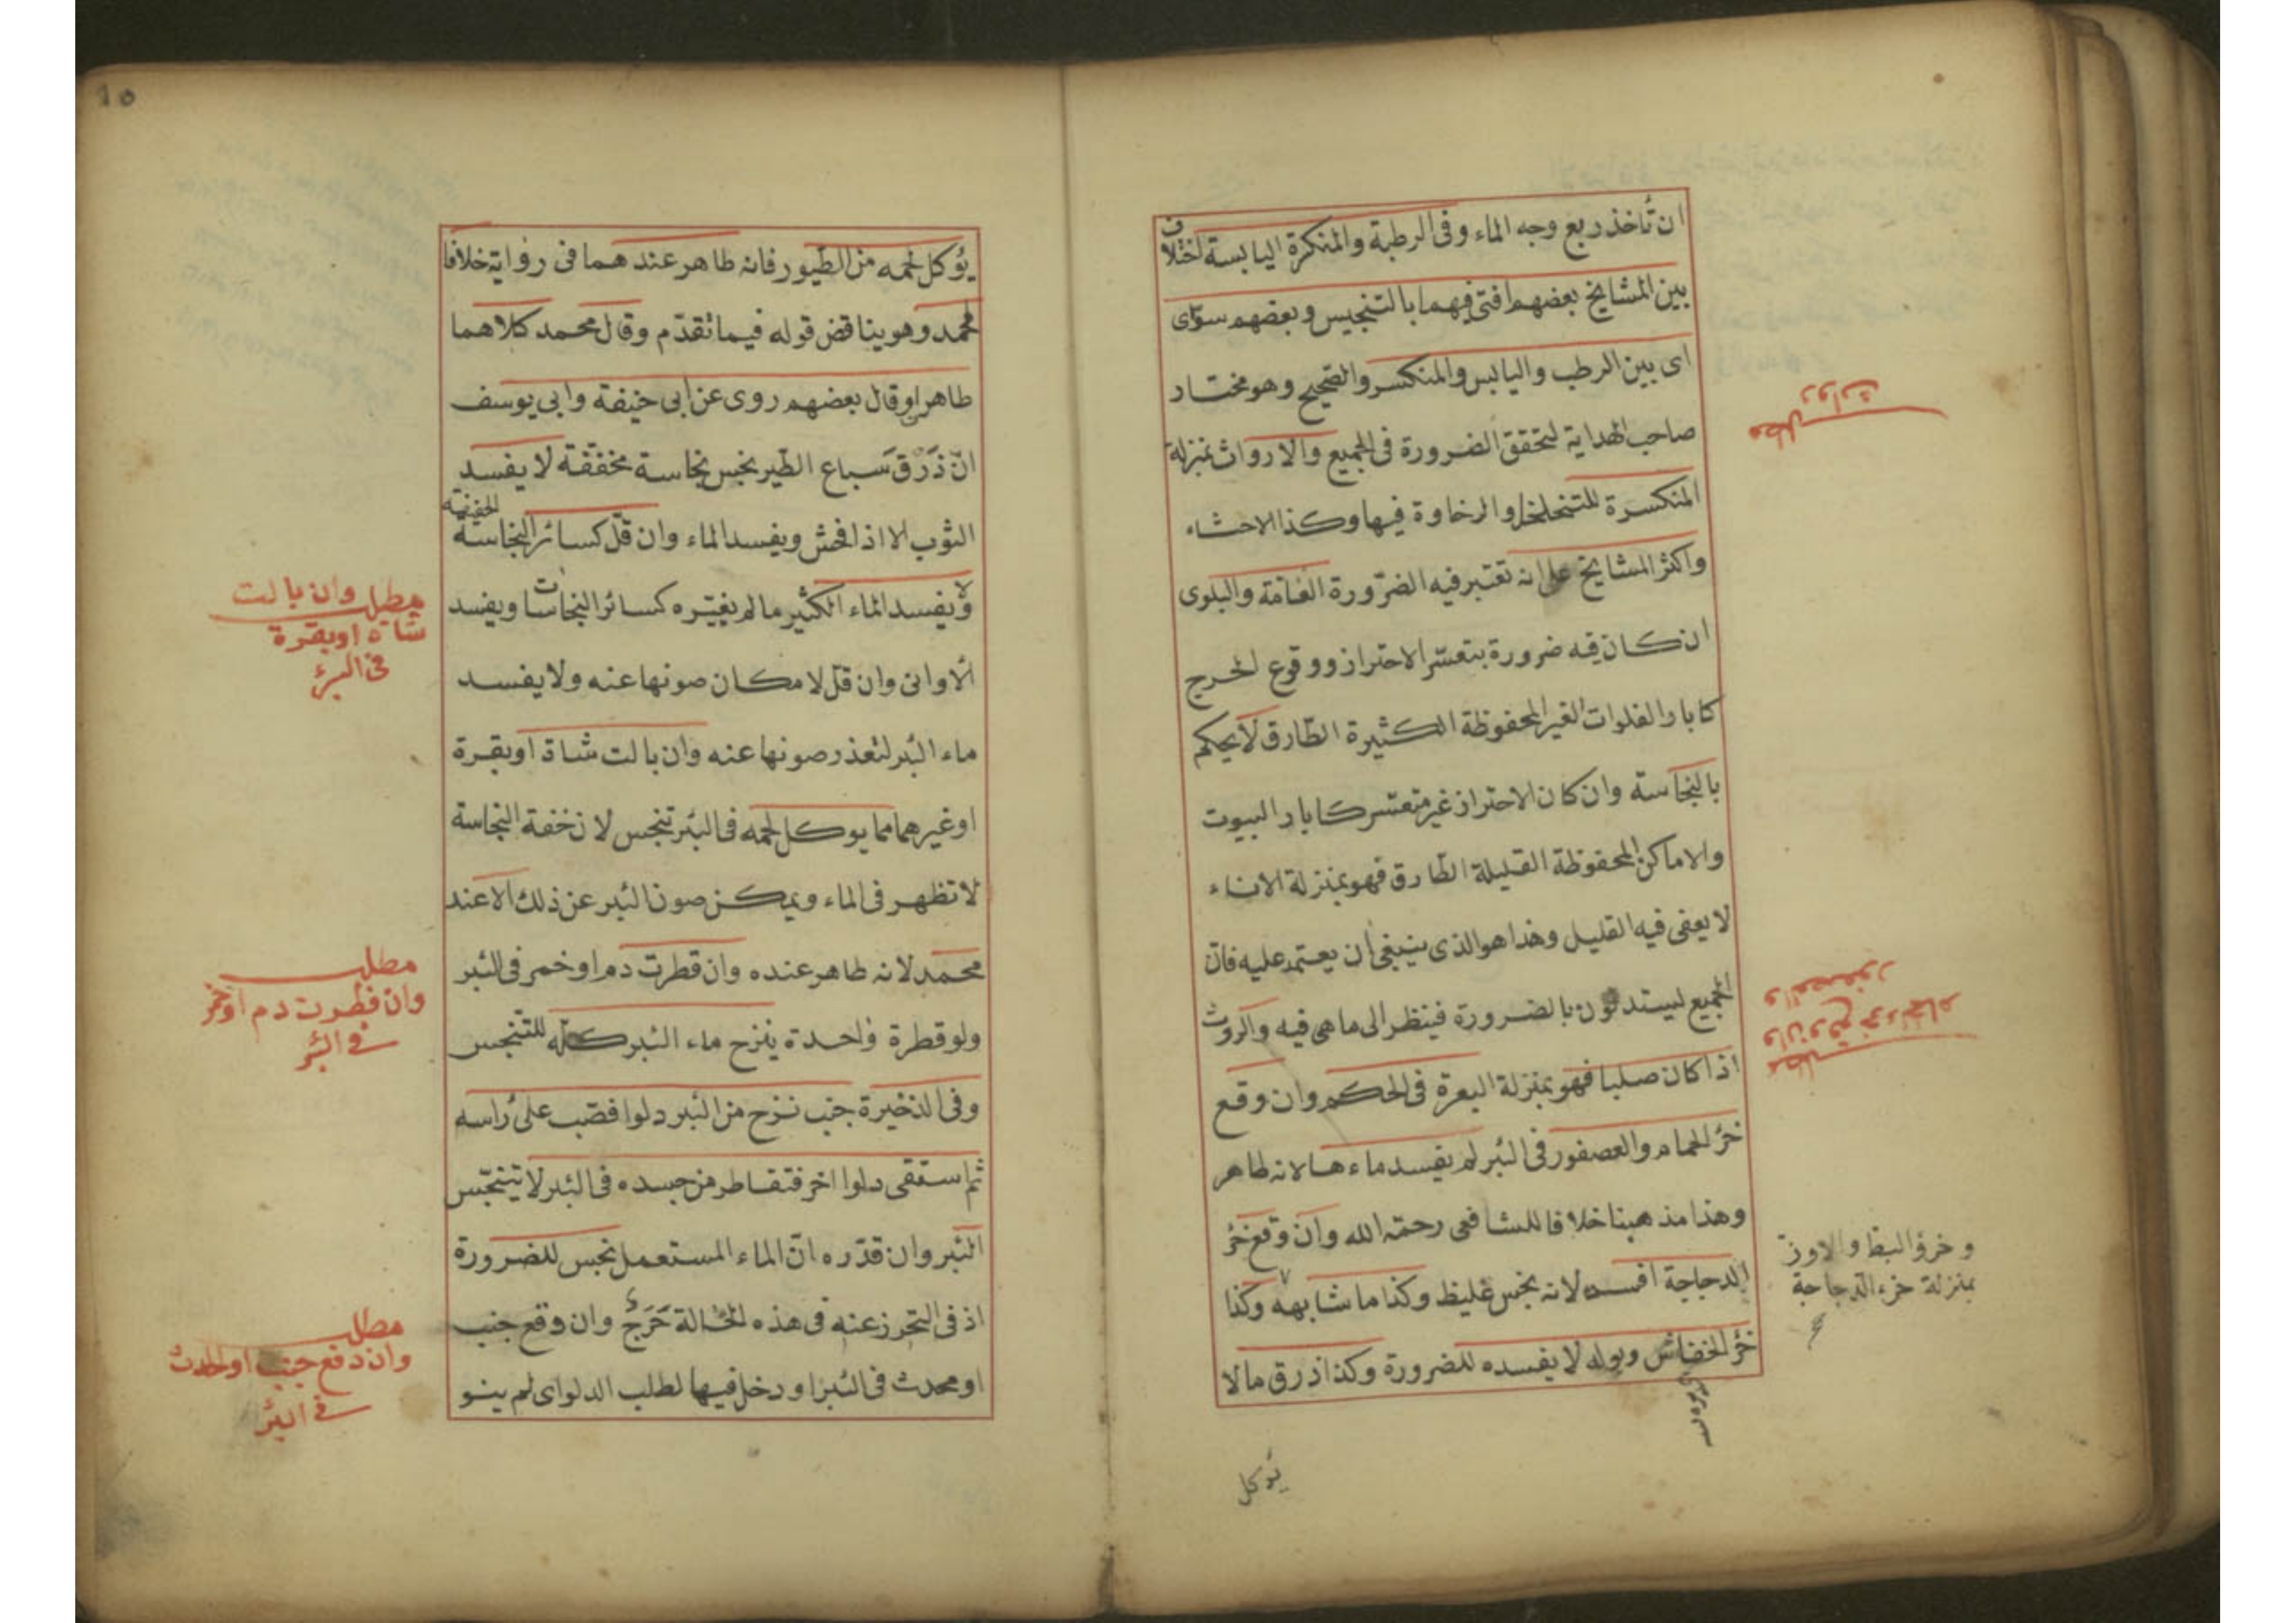 ان تأخذ ربع وجه الماء وفى الرطبة والمنكرة اليابسة اختلاف
بين المشايخ بعضهم افتى فيهما بالتنجيس وبعضهم سوّاى
اى بين الرطب واليابس والمنكسر والصحيح وهو مختار
صاحب الهداية لتحقق الضرورة فى الجميع والارواث بمنزلة
المنكسرة للتخلخل والرخاوة فيها وكذا الاحثاء
واكثر المشايخ على انه تعتبر فيه الضرّورة العامّة والبلوى
ان كان فيه ضرورة بتعسّر الاحتراز ووقوع الحرج
كابار الفلوات الغير المحفوظة الكثيرة الطّارق لا يحكم
بالنجاسة وان كان الاحتراز غير متعسّر كابار البيوت
والاماكن المحفوظة القليلة الطّارق فهو بمنزلة الاناء
لا يعفى فيه القليل وهذا هو الذى ينبغى ان يعتمد عليه فانّ
الجميع ليستدلون بالضرورة فينظر الى ما هى فيه والروث
اذا كان صلبا فهو بمنزلة البعرة فى الحكم وان وقع
خرُؤ الحمام والعصفور فى البئر لم يفسد ماءها لانه طاهر
وهذا مذهبنا خلافا للشافعى رحمة الله وان وقع خرُؤ
الدجاجة افسده لانه نجس غليظ وكذا ما شابهه وكذا
خرُؤ الخفاش وبوله لا يفسده للضرورة وكذا ذرق ما لا
يؤكل
مطلب
روات
مطلب
وان وقع خرء الحمام
والعصفور
وخرؤ البط والاوزّ
بمنزلة خرء الدّجاجة
10
يؤكل لحمه من الطّيور فانه طاهر عندهما فى رواية خلافا
لمحمد وهو يناقض قوله فيما تقدّم وقال محمد كلاهما
طاهر وقال بعضهم روى عن ابى حنيفة وابى يوسف
انّ ذَرْقَ سباع الطّير نجس نجاسة مخففة لا يفسد
الثوب الا اذا فحش ويفسد الماء وان قلّ كسائر النجاسة الخفيفة
ولا يفسد الماء الكثير ما لم يغيّره كسائر النجاسات ويفسد
الاوانى وان قلّ لامكان صونها عنه ولا يفسد
ماء البئر لتعذر صونها عنه وان بالت شاة او بقرة
او غيرهما مما يوكل لحمه فى البئر تنجس لان خفة النجاسة
لا تظهر فى الماء ويمكن صون البئر عن ذلك الا عند
محمد لانه طاهر عنده وان قطرت دم او خمر فى البئر
ولو قطرة واحدة ينزح ماء البئر كله للتّنجس
وفى الذخيرة جنب نزح من البئر دلوا فصّب على رأسه
ثم استقى دلوا اخر فتقاطر من جسده فى البئر لا يتنجّس
البئر وان قدّره انّ الماء المستعمل نجس للضرورة
اذ فى التحرز عنه فى هذه الحالة حَرَج وان وقع جنب
او محدث فى البئر او دخل فيها لطلب الدلو اى لم ينو
مطلب وان بالت
شاة او بقرة
فى البئر
مطلب
وان قطرت دم او خمر
فى البئر
مطلب
وان دفع جنب او لحدث
فى البئر